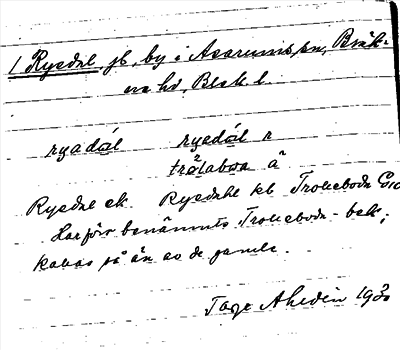 1 Ryedal jb, by i Asarums sn, Bräk-
ne hd, Blek. l.
ryadal ryedal r
trålabwa å
Ryedal ek. Ryedahl kb Trolleboda
Har förr benämnts Trolleboda-bek,
kallas så än av de gamle.
Tage Ahldén 1930